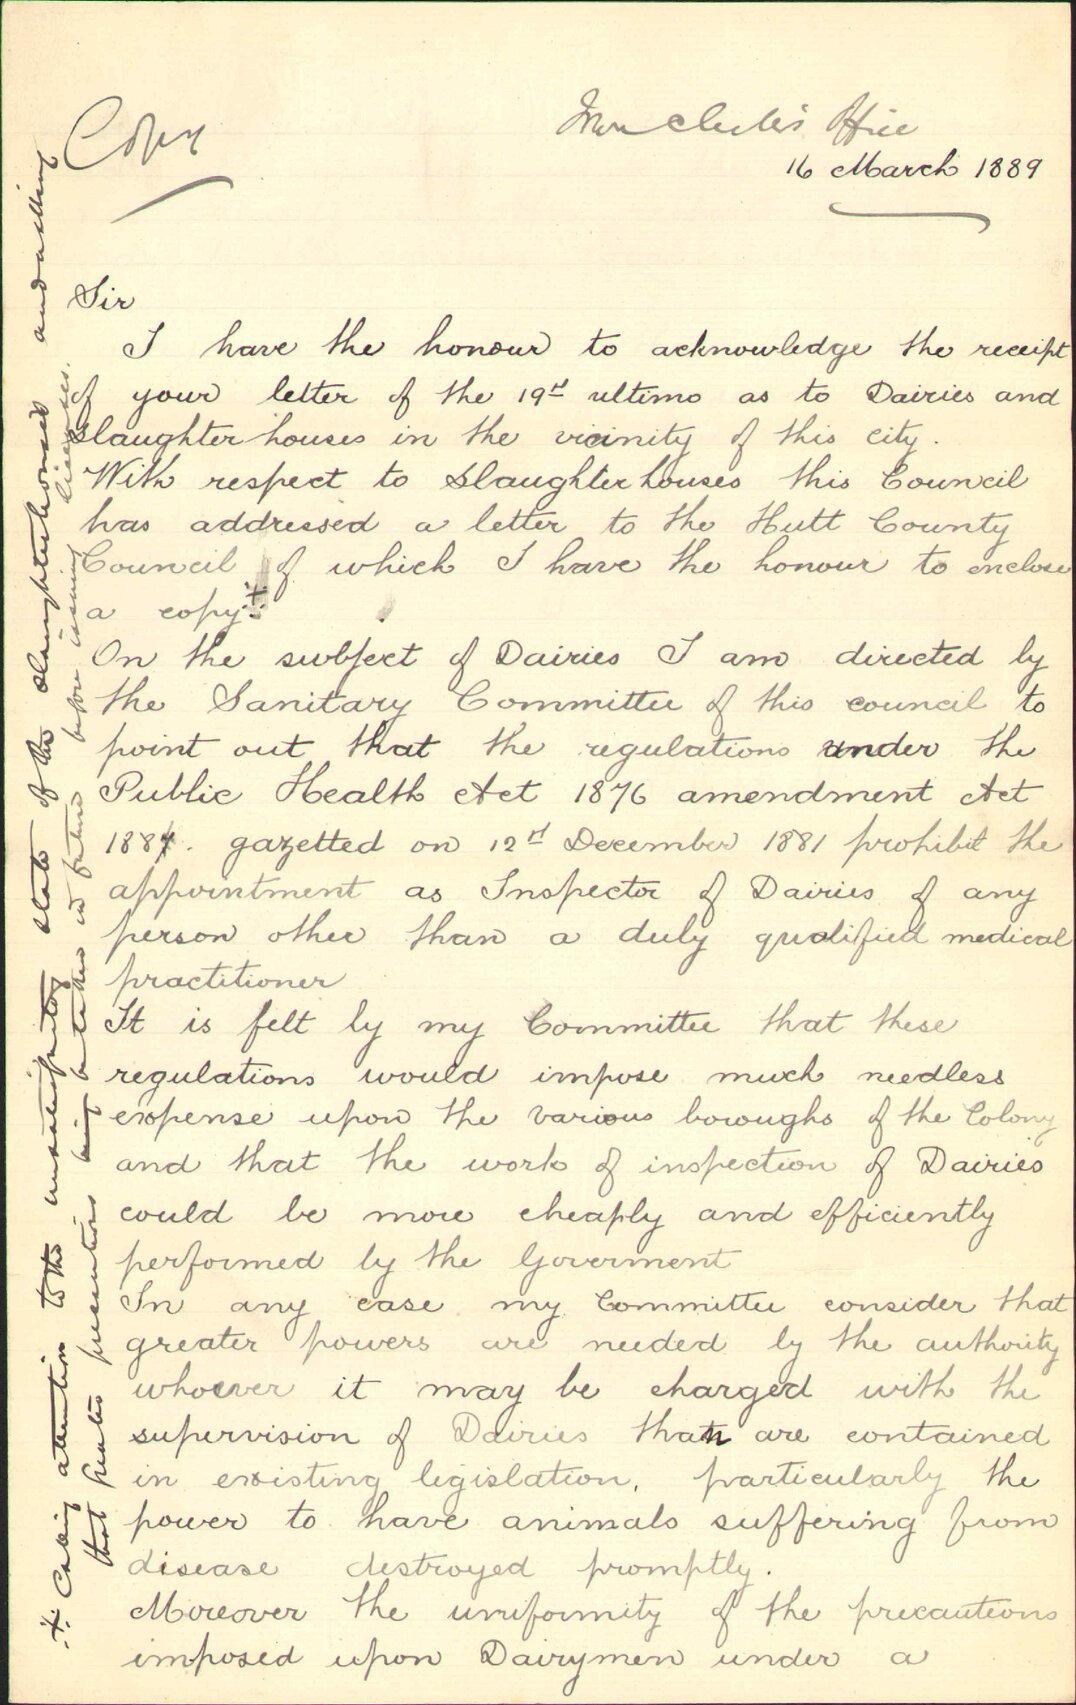 Copy
Town Clerk's Office
16 March 1889
Sir
I have the honour to acknowledge the receipt
of your letter of the 19th ultimo as to Dairies and
Slaughter houses in the vicinity of this city.
With respect to Slaughterhouses this Council
has addressed a letter to the Hutt County
Council of which I have the honour to enclose
a copy ※
On the subject of Dairies I am directed by
the Sanitary Committee of this council to
point out that the regulations under the
Public Health Act 1876 amendment Act
1881. gazetted on 12th December 1881 prohibit the
appointment as Inspector of Dairies of any
person other than a duly qualified medical
practitioner
It is felt by my Committee that these
regulations would impose much needless
expense upon the various boroughs of the Colony
and that the work of inspection of Dairies
could be more cheaply and efficiently
performed by the Goverment
In any case my Committee consider that
greater powers are needed by the authority
whoever it may be charged with the
supervision of Dairies than are contained
in existing legislation, particularly the
power to have animals suffering from
disease destroyed promptly.
Moreover the uniformity of the precautions
imposed upon Dairymen under a
※ Calling attention to the unsatisfactory state of the slaughterhouses and asking
that greater precautions being be taken in future before issuing licenses.